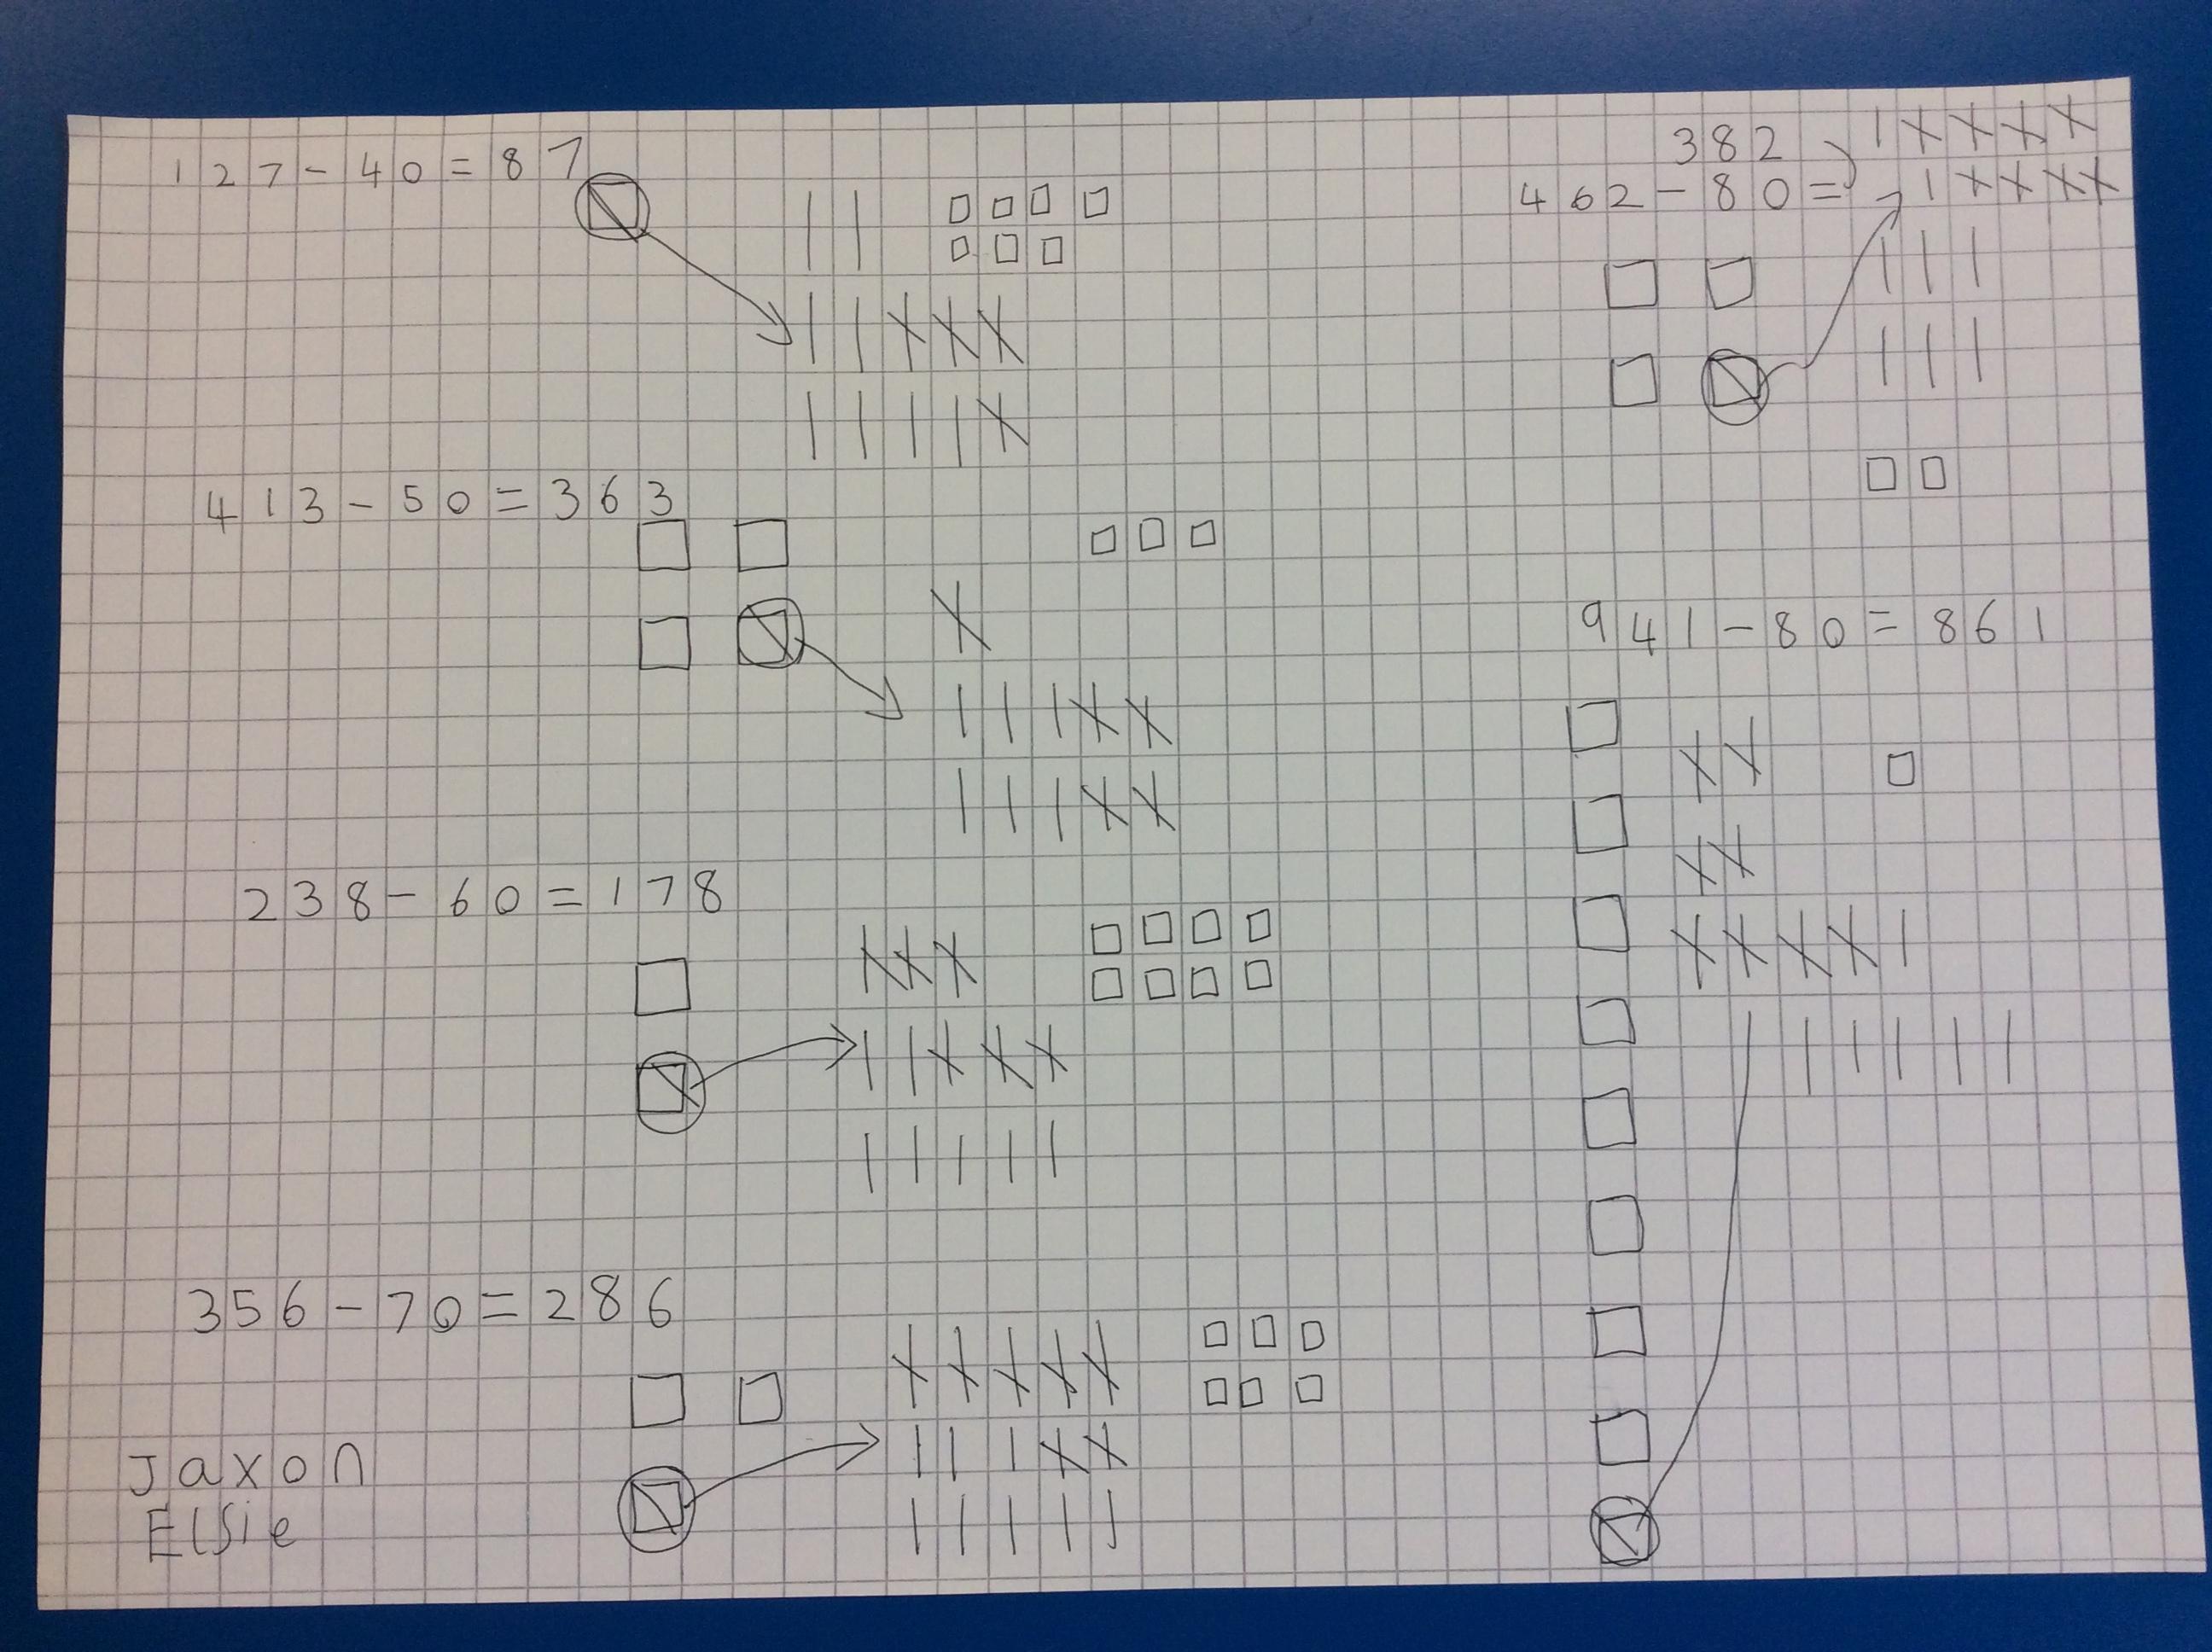 127-40=87
413-50=363
238-60=178
356-70=286
Jaxon
Elsie
382
462-80=
941-80=861